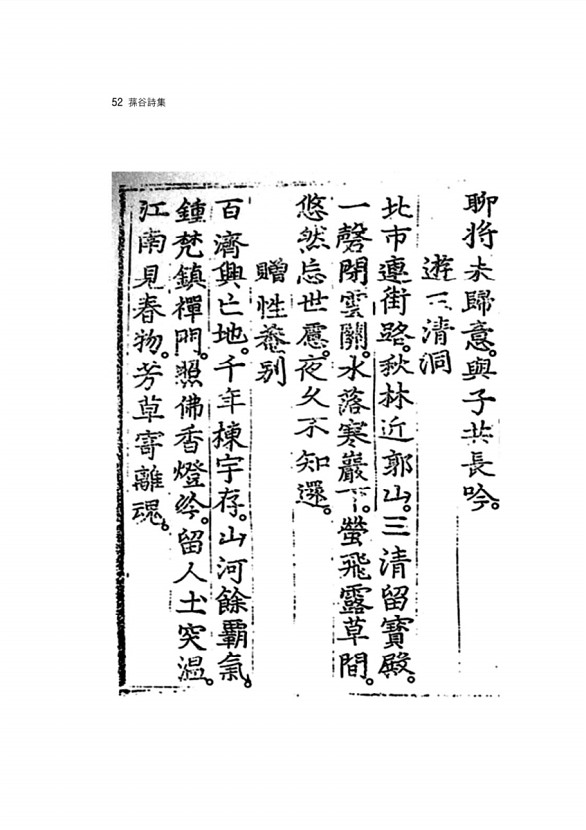 52 蓀谷詩集
聊將未歸意。與子共長吟。
遊三清洞
北市連街路。秋林近郭山。三清留寶殿。
一磬閉雲關。水落寒巖下。螢飛露草間。
悠然忘世慮。夜久不知還。
贈性菴別
百濟興亡地。千年棟宇存。山河餘霸氣。
鍾梵鎮禪門。照佛香燈。留人土突溫。
江南見春物。芳草寄離魂。